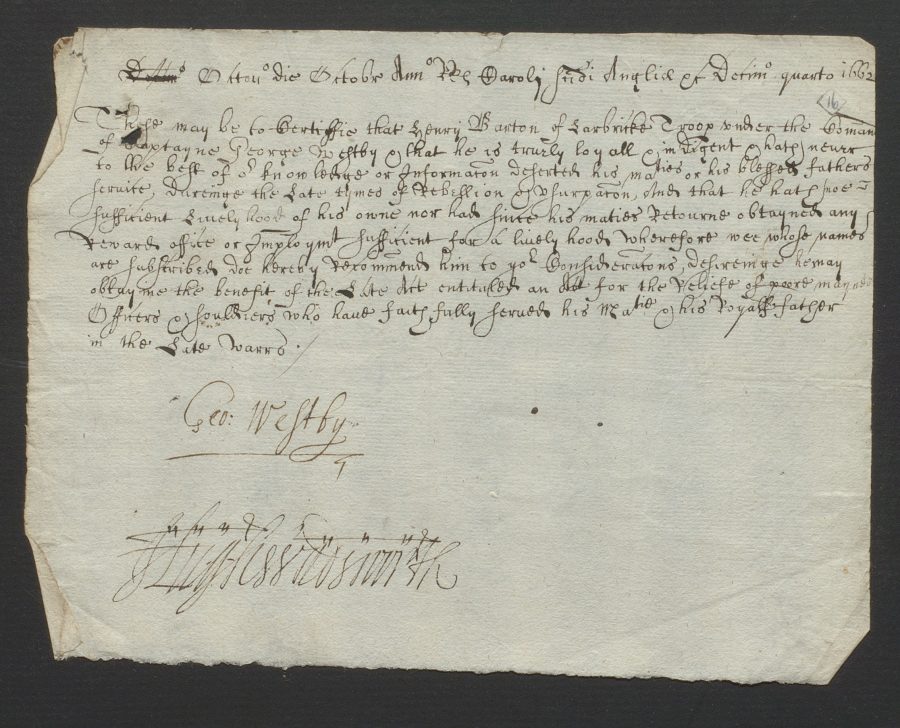 Octavo die Octobr Anno RRs Caroli scdi Angliæ &c Decimo quarto 1662
16
These may be to Certiffie that Henry Barton of Larbricke Troop vnder the Coman
of Captayne George Westby & that he is truely loyall & indigent & hath neuer
to the best of or knowledge or Informacon deserted his maties or his blessed fathers
seruice, dureinge the Late tymes of Rebellion & vsurpacon, And that he hath noe
sufficient Livelyhood of his owne nor had since his maties Retourne obtayned any
Reward office or Imploymt sufficient for a lively hood, Wherefore wee whose names
are subscribed doe hereby Recommend him to yor Consideracons, desireinge he may
obtayne the benefit of the Late Act entituled an Act for the Reliefe of poore maymed
Officers & souldiers who haue faithfully serued his Matie & his Royall father
in the Late Warrs.
Geo: Westby
Hugh